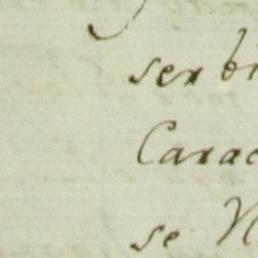 ser bi
Carac
se N